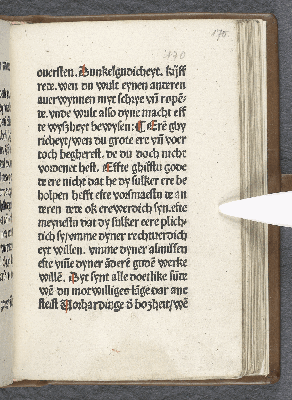 170
170.
ouersten. Dunkelgudicheyt. kijff
rete. wen du wult eynen anderen
auerwynnen myt schaye vñ ropē-
te. vnde wult also dyne macht eff
te wyszheyt bewysen: Ere ghy
richeyt/wen du grote ere vñ voer
toch begherest. de du doch nicht
vordenet hest. Effte ghifstu gode
te ere nicht dat he dy sulker ere be
holpen hefft efte vorsmaestu te an
teren tete ok erewerdich syn. efte
meynestu dat dy sulker eere plich-
tich sy/vmme dyner rechtuerdich
eyt willen. vmme dyner almissen
efte vm̄e dyner ādere gudē werke
willē. Dyt synt alle doetlike sūde
wē du motwilliges lāge dar ane
steist Vorhardinge d̄ boszheit/wē